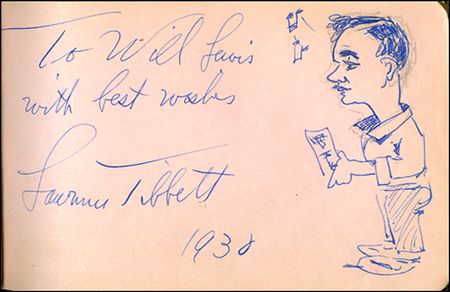 To Will Lewis
with best wishes
Lawrence Tibbett
1938